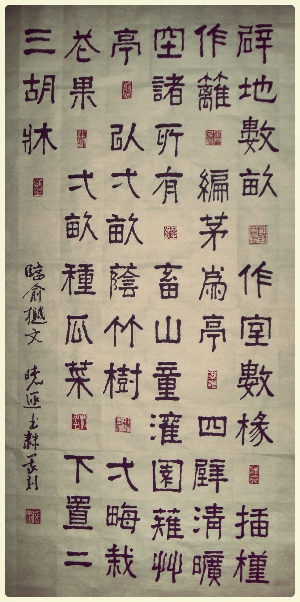 辟地數畝 作室數椽 插槿
作籬 編茅為亭 四壁清曠
空諸所有 畜山童灌園薙艸
亭 以弌畝蔭竹樹 弌畮栽
花果 弍畝種瓜菜 下置二
三胡牀
臨俞樾文 篆刻